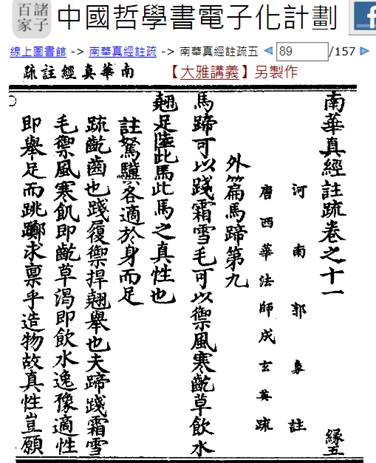 諸子百家 中國哲學書電子化計劃
線上圖書館 -> 南華真經註疏 -> 南華真經註疏五 89 /157
南華真經註疏 【大雅講義】另製作
南華真經註疏卷之十一 縁五
河南郭象註
唐西華法師成玄英疏
外篇馬蹄第九
馬蹄可以踐霜雪毛可以禦風寒齕草飲水
翹足陸此馬此馬之真性也
註駑驥各適於身而足
疏齕齒也踐履禦捍翹舉也夫蹄踐霜雪
毛禦風寒飢即齕草渴即飲水逸豫適性
即舉足而跳躑求稟乎造物故真性豈願